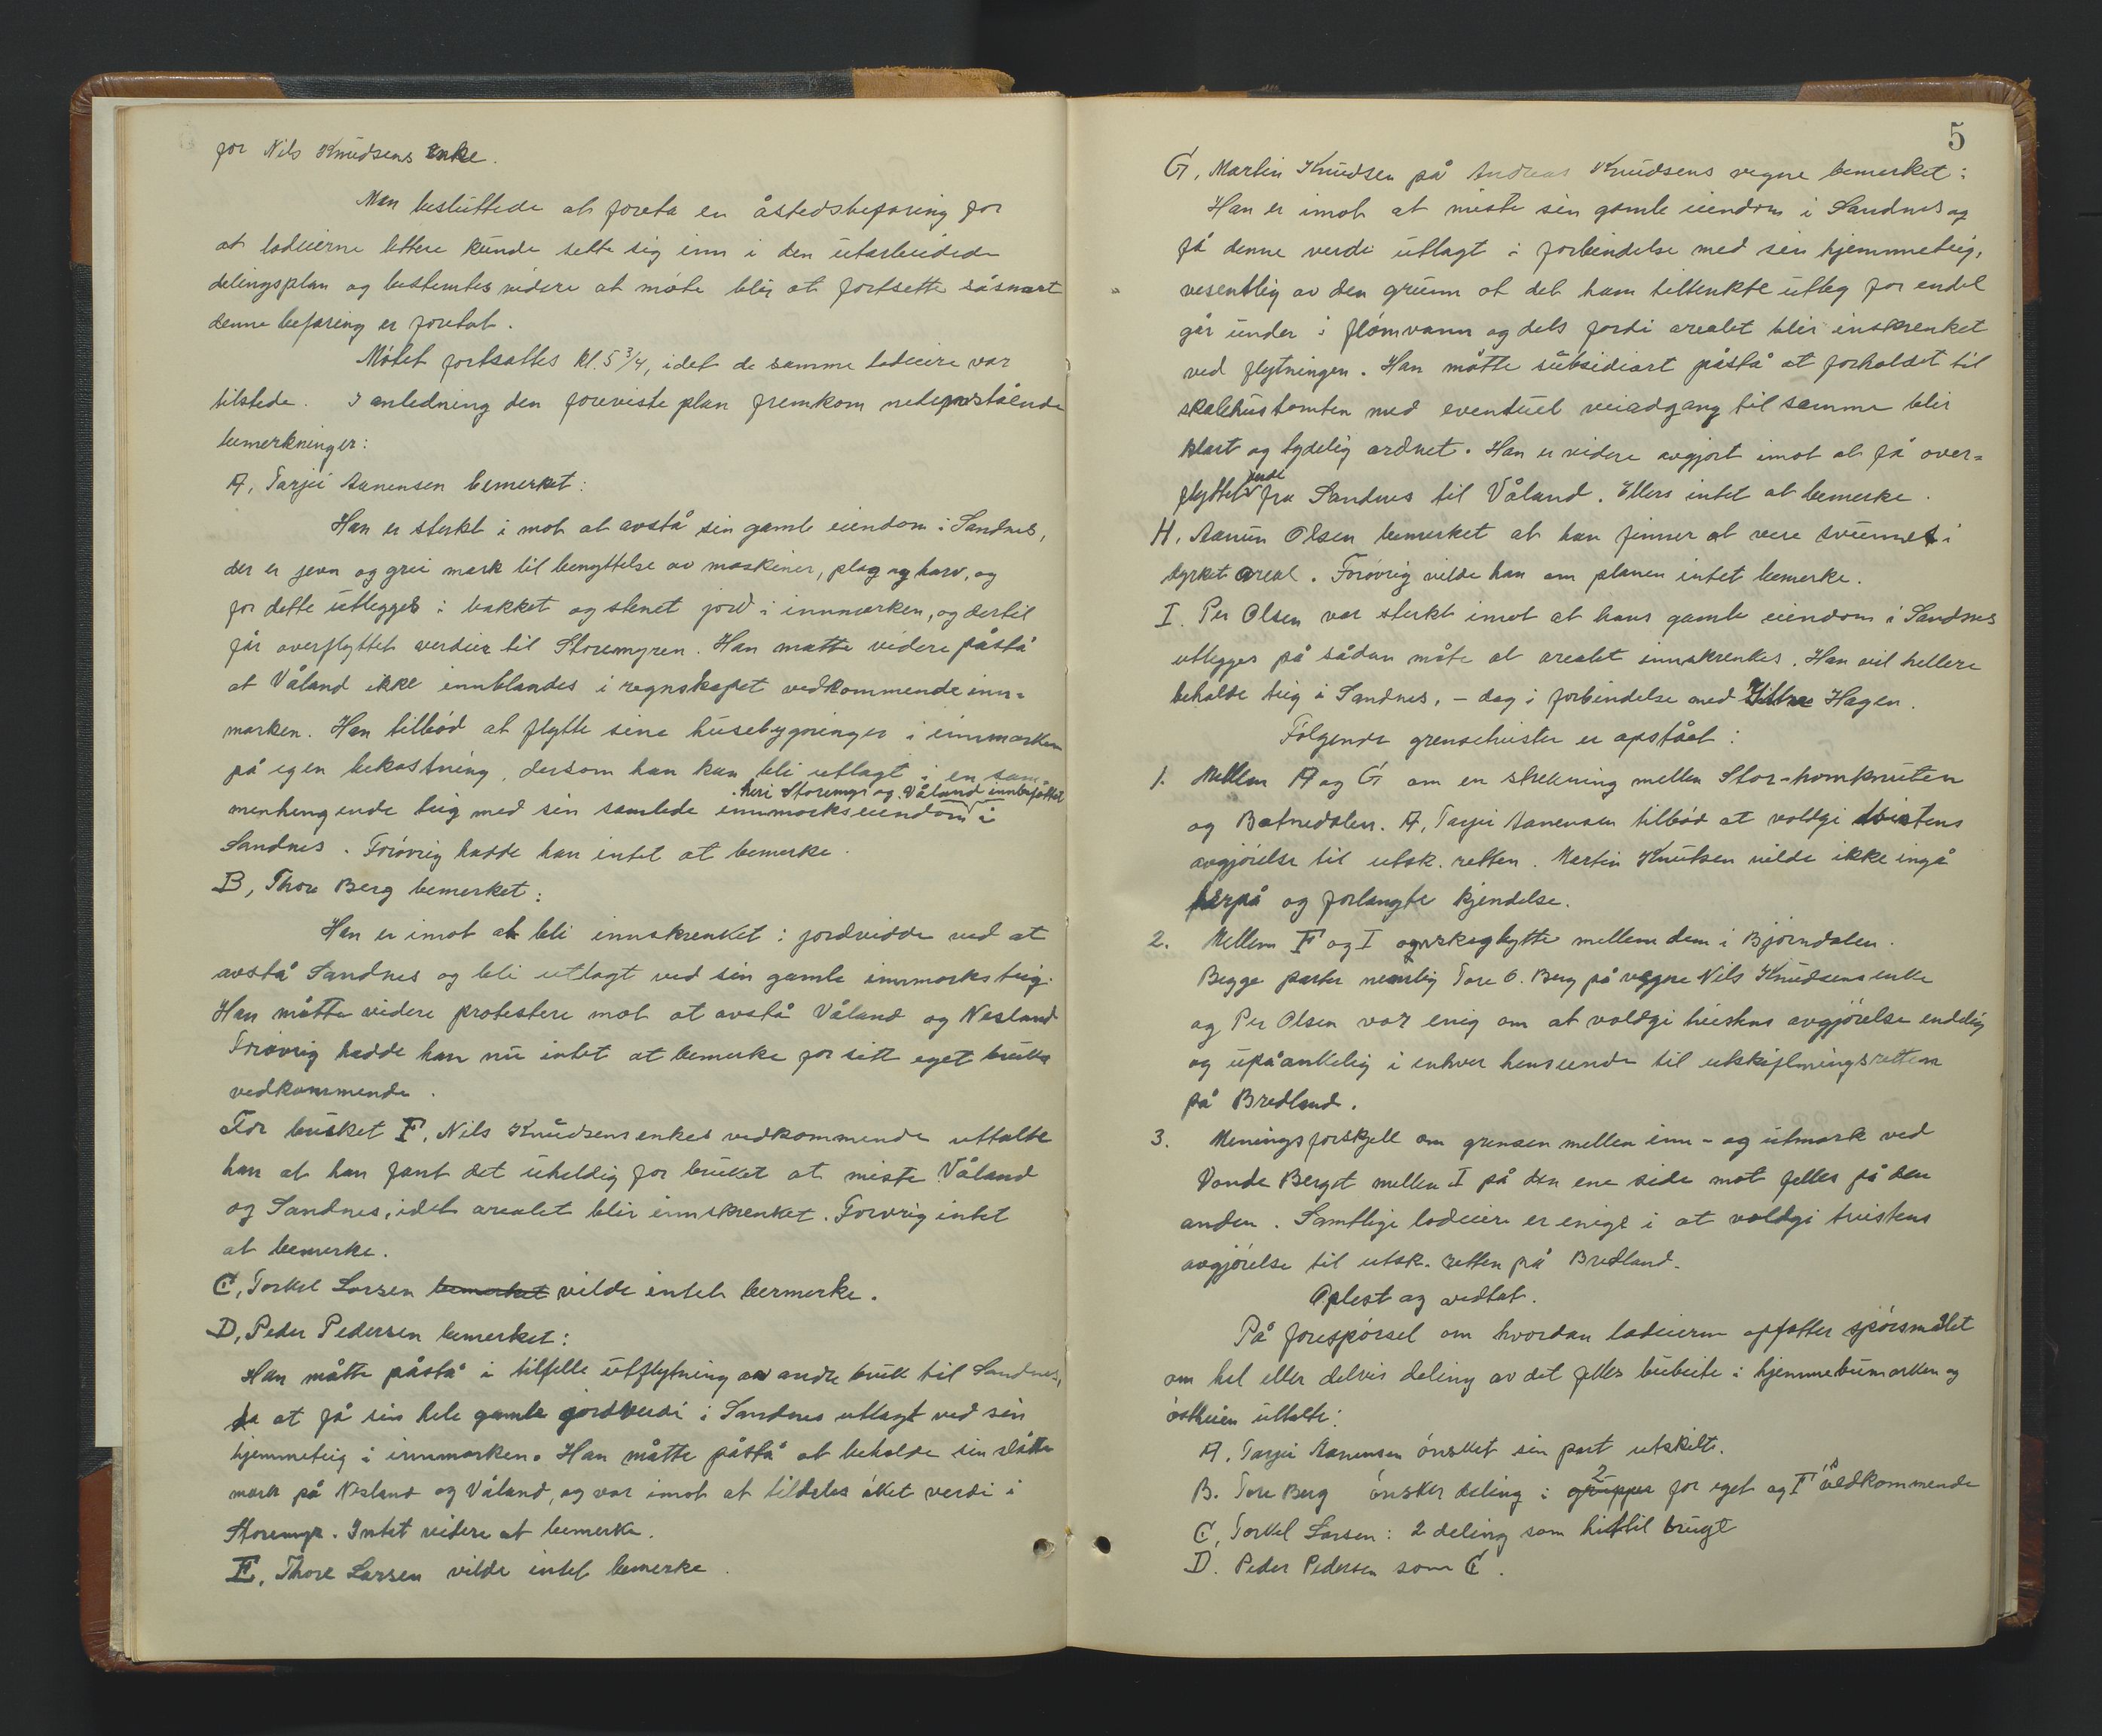 for Nils Knudsens enke.
Man besluttede at foreta en åstedsbefaring for
at lodeierne lettere kunde sette sig inn i den utarbeidede
delingsplan og bestemtes videre at møte blir at fortsette såsnart
denne befaring er foretat.
Møtet fortsattes kl. 5 3/4, idet de samme lodeiere var
tilstede. I anledning den foreviste plan fremkom nedenstående
bemerkninger:
A, Tarjei Aanensen bemerket:
Han er sterkt i mot at avstå sin gamle eiendom i Sandnes,
der er jevn og grei mark til benyttelse av maskiner, plog og harv, og
for dette utlegges i bakket og stenet jord i innmarken, og dertil
får overflyttet verdier til Storemyren. Han måtte videre påstå
at Våland ikke innblandes i regnskapet vedkommende inn-
marken. Han tilbød at flytte sine husebygninger i innmarken
på egen bekostning, dersom han kan bli utlagt i en sam-
heri Storemyr og Våland innbefattet
menhengende teig med sin samlede innmarkseiendom i
Sandnes. Forøvrig hadde han intet at bemerke.
B, Thore Berg bemerket:
Han er imot at bli innskrenket i jordvidde ved at
avstå Sandnes og bli utlagt ved sin gamle innmarksteig.
Han måtte videre protestere mot at avstå Våland og Nesland
Forøvrig hadde han nu intet at bemerke for sitt eget bruks
vedkommende.
For bruket F, Nils Knudsens enkes vedkommende uttalte
han at han fant det uheldig for bruket at miste Våland
og Sandnes, idet arealet blir innskrenket. Forøvrig intet
at bemerke.
C, Torkel Larsen bemerket vilde intet bermerke.
D, Peder Pedersen bemerket:
Han måtte påstå i tilfelle utflytning av andre bruk til Sandnes,
da at få sin hele gamle jordverdi i Sandnes utlagt ved sin
hjemmeteig i innmarken. Han måtte påstå at beholde sin slåtte
mark på Nesland og Våland, og var imot at tildeles øket verdi i
Storemyr. Intet videre at bemerke.
E, Thore Larsen vilde intet bemerke.
5
G, Martin Knudsen på Andreas Knudsens vegne bemerket:
Han er imot at miste sin gamle eiendom i Sandnes og
få denne verdi utlagt i forbindelse med sin hjemmeteig,
vesentlig av den grunn at det ham tiltenkte utleg for endel
går under i flomvann og dels fordi arealet blir inskrenket
ved flytningen. Han måtte subsidiært påstå at forholdet til
skolehustomten med eventuel veiadgang til samme blir
klart og tydelig ordnet. Han er videre avgjort imot at få over-
verdi
flyttet fra Sandnes til Våland. Ellers intet at bemerke.
H, Aanun Olsen bemerket at han finner at være svunnet i
dyrket areal. Forøvrig vilde han om planen intet bemerke.
I. Per Olsen var sterkt imot at hans gamle eiendom i Sandnes
utlegges på sådan måte at arealet innskrenkes. Han vil hellere
beholde teig i Sandnes, – dog i forbindelse med Hagen.
Følgende grensetvister er opstået:
1. Mellem A og G om en strekning mellem Stor-homknuten
og Botnedalen. A, Tarjei Aanensen tilbød at voldgi tvistens
avgjørelse til utsk. retten. Martin Knutsen vilde ikke ingå
herpå og forlangte kjendelse.
2. Mellem F og I om skogbytte mellem dem i Bjørndalen.
Begge parter nemlig Tore O. Berg på vegne Nils Knudsens enke
og Per Olsen var enig om at voldgi tvistens avgjørelse endelig
og upåankelig i enhver henseende til utskiftningsretten
på Bredland.
3. Meningsforskjell om grensen mellem inn- og utmark ved
Vonde Berget mellem I på den ene side mot felles på den
anden. Samtlige lodeiere er enige i at voldgi tvistens
avgjørelse til utsk. retten på Bredland.
Oplest og vedtat.
På forespørsel om hvordan lodeierne opfatter spørsmålet
om hel eller delvis deling av det felles bubeite i hjemmebumarken og
østheien uttalte:
A. Tarjei Aanensen ønsket sin part utskilt.
B. Tore Berg ønsker deling i 2 grupper for eget og F's vedkommende
C, Torkel Larsen: 2 deling som hittil brugt
D. Peder Pedersen som C.